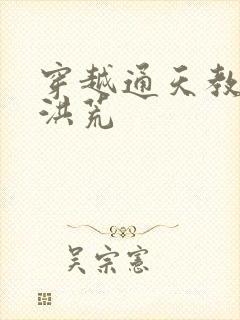 穿越通天教
洪荒
吴宗宪